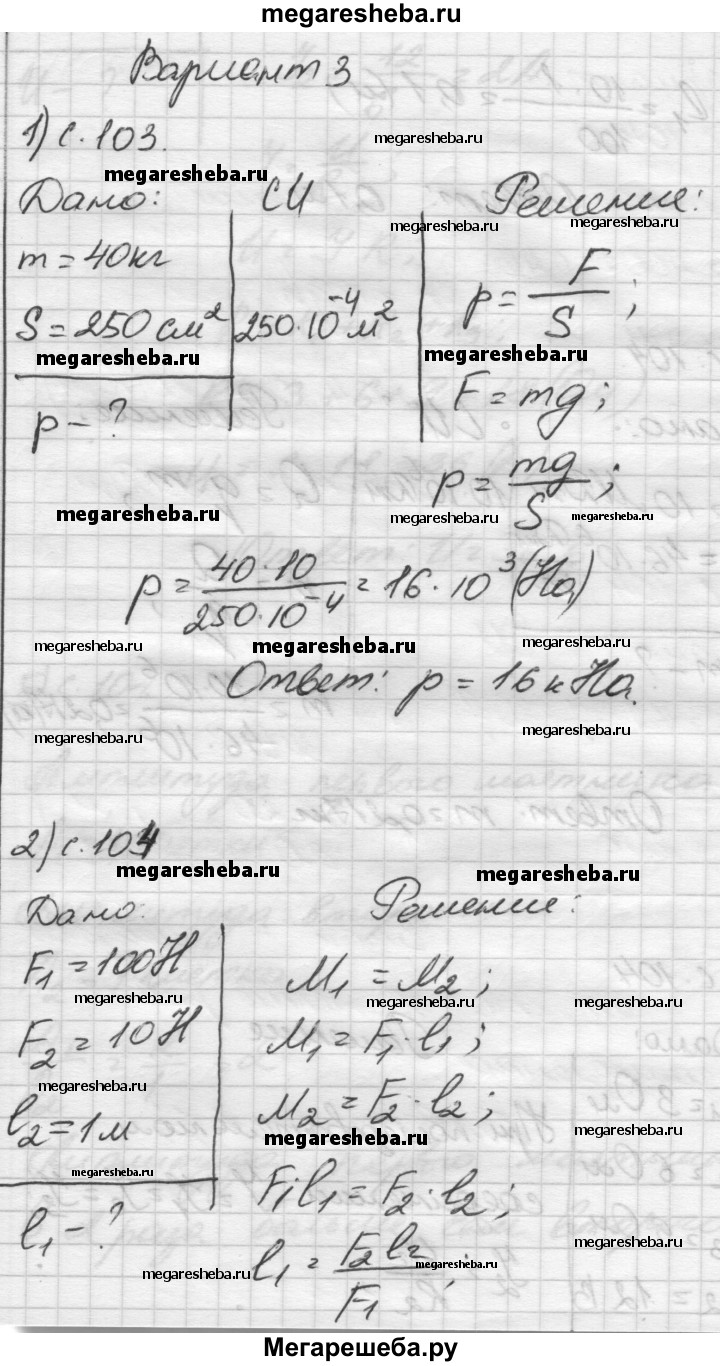 megaresheba.ru
Вариант 3
1) с. 103.
megaresheba.ru
megaresheba.ru
Дано: СИ Решение:
megaresheba.ru megaresheba.ru
m = 40 кг
S = 250 см² 250·10⁻⁴ м² p = F/S ;
megaresheba.ru megaresheba.ru
p - ? F = mg ;
p = mg/S ;
megaresheba.ru megaresheba.ru megaresheba.ru
p = 40·10/250·10⁻⁴ = 16·10³ (Па)
megaresheba.ru megaresheba.ru megaresheba.ru
Ответ: p = 16 кПа.
megaresheba.ru megaresheba.ru
2) с. 104
megaresheba.ru megaresheba.ru
Дано: Решение:
F₁ = 100 Н M₁ = M₂ ;
megaresheba.ru megaresheba.ru megaresheba.ru
F₂ = 10 Н M₁ = F₁·l₁ ;
megaresheba.ru
l₂ = 1 м M₂ = F₂·l₂ ;
megaresheba.ru megaresheba.ru
megaresheba.ru
F₁l₁ = F₂·l₂ ;
l₁ - ?
megaresheba.ru
l₁ = F₂l₂/F₁ ;
megaresheba.ru megaresheba.ru
Мегарешеба.ру